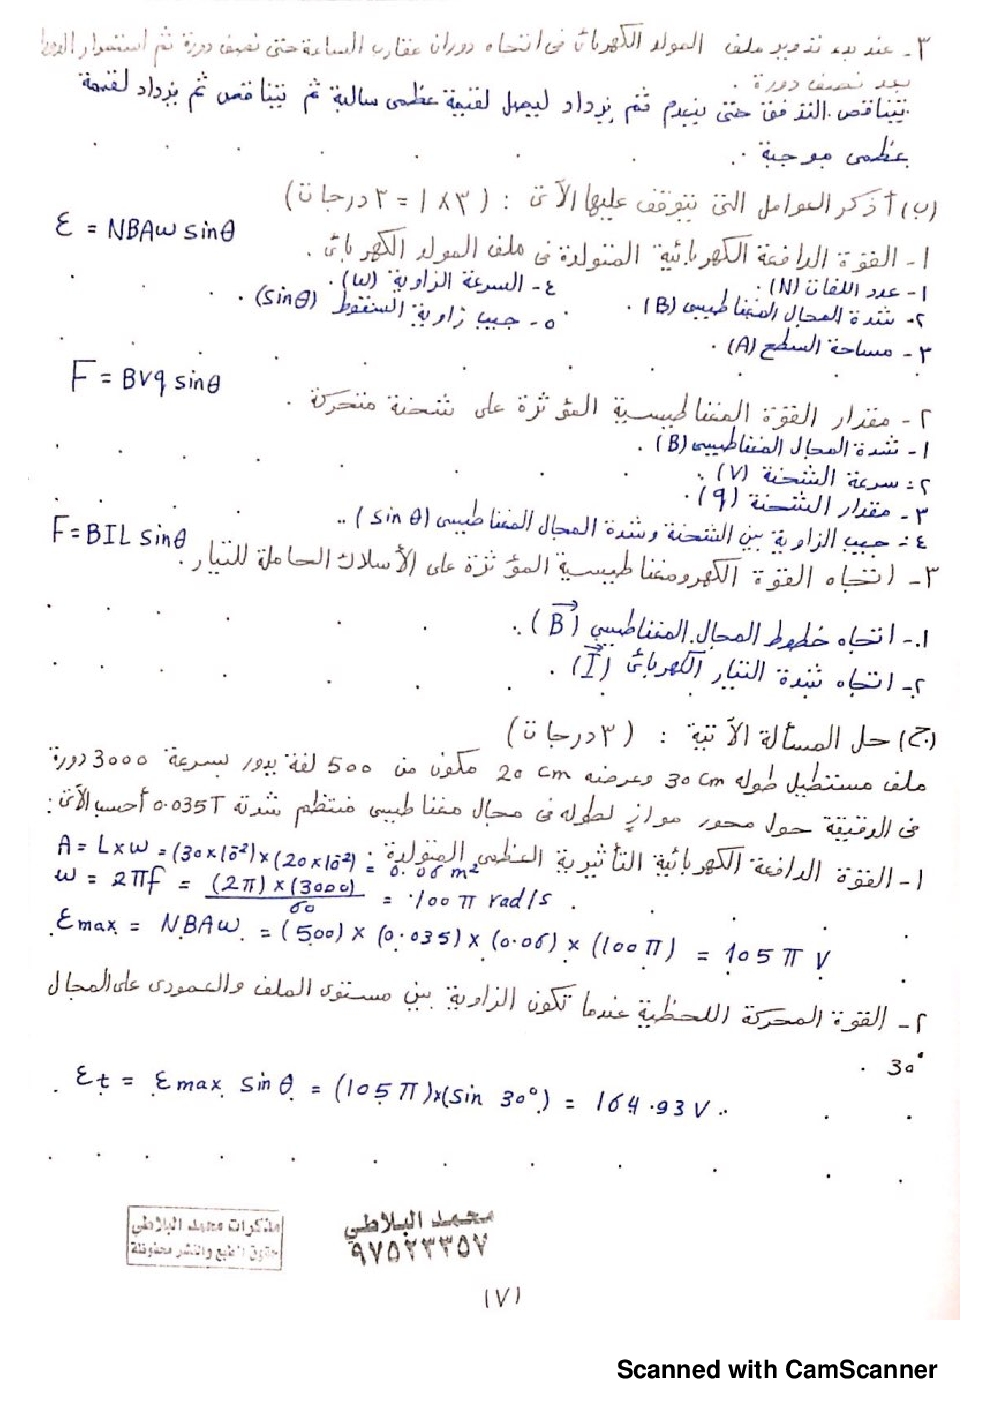 ٣- عند بدء تدوير ملف المولد الكهربائي في اتجاه دوران عقارب الساعة حتى نصف دورة ثم استمرار
بعد نصف دورة .
يتناقص التدفق حتى ينعدم ثم يزداد ليصل لقيمة عظمى سالبة ثم يتناقص ثم يزداد لقيمة
عظمى موجبة .
(ب) أذكر العوامل التي يتوقف عليها الآتي : (٣×١ = ٣ درجات)
ε = NBAω sinθ
١- القوة الدافعة الكهربائية المتولدة في ملف المولد الكهربائي .
١- عدد اللفات (N) . ٤- السرعة الزاوية (ω) .
٢- شدة المجال المغناطيسي (B) . ٥- جيب زاوية السقوط (sinθ) .
٣- مساحة السطح (A) .
F = BVq sinθ
٢- مقدار القوة المغناطيسية المؤثرة على شحنة متحركة .
١- شدة المجال المغناطيسي (B) .
٢- سرعة الشحنة (V) .
٣- مقدار الشحنة (q) .
٤- جيب الزاوية بين الشحنة وشدة المجال المغناطيسي (sin θ) ..
F=BIL sinθ
٣- اتجاه القوة الكهرومغناطيسية المؤثرة على الأسلاك الحاملة للتيار .
١- اتجاه خطوط المجال المغناطيسي (B⃗) .
٢- اتجاه شدة التيار الكهربائي (I⃗) .
(ج) حل المسألة الآتية : (٣ درجات)
ملف مستطيل طوله 30 cm وعرضه 20 cm مكون من 500 لفة يدور بسرعة 3000 دورة
في الدقيقة حول محور موازٍ لطوله في مجال مغناطيسي منتظم شدته 0.035T أحسب الآتي :
١- القوة الدافعة الكهربائية التأثيرية العظمى المتولدة :
A = L×w = (30×10⁻²)×(20×10⁻²) = 0.06 m²
ω = 2πf = (2π)×(3000) / 60 = 100 π rad/s .
εmax = NBAω = (500) × (0.035) × (0.06) × (100π) = 105 π V
٢- القوة المحركة اللحظية عندما تكون الزاوية بين مستوى الملف والعمودي على المجال
30° .
εt = εmax sin θ = (105 π)×(sin 30°) = 164.93 V .
مذكرات محمد البلاطي
حقوق الطبع والنشر محفوظة
محمد البلاطي
٩٧٥٢٣٣٥٧
(٧)
Scanned with CamScanner